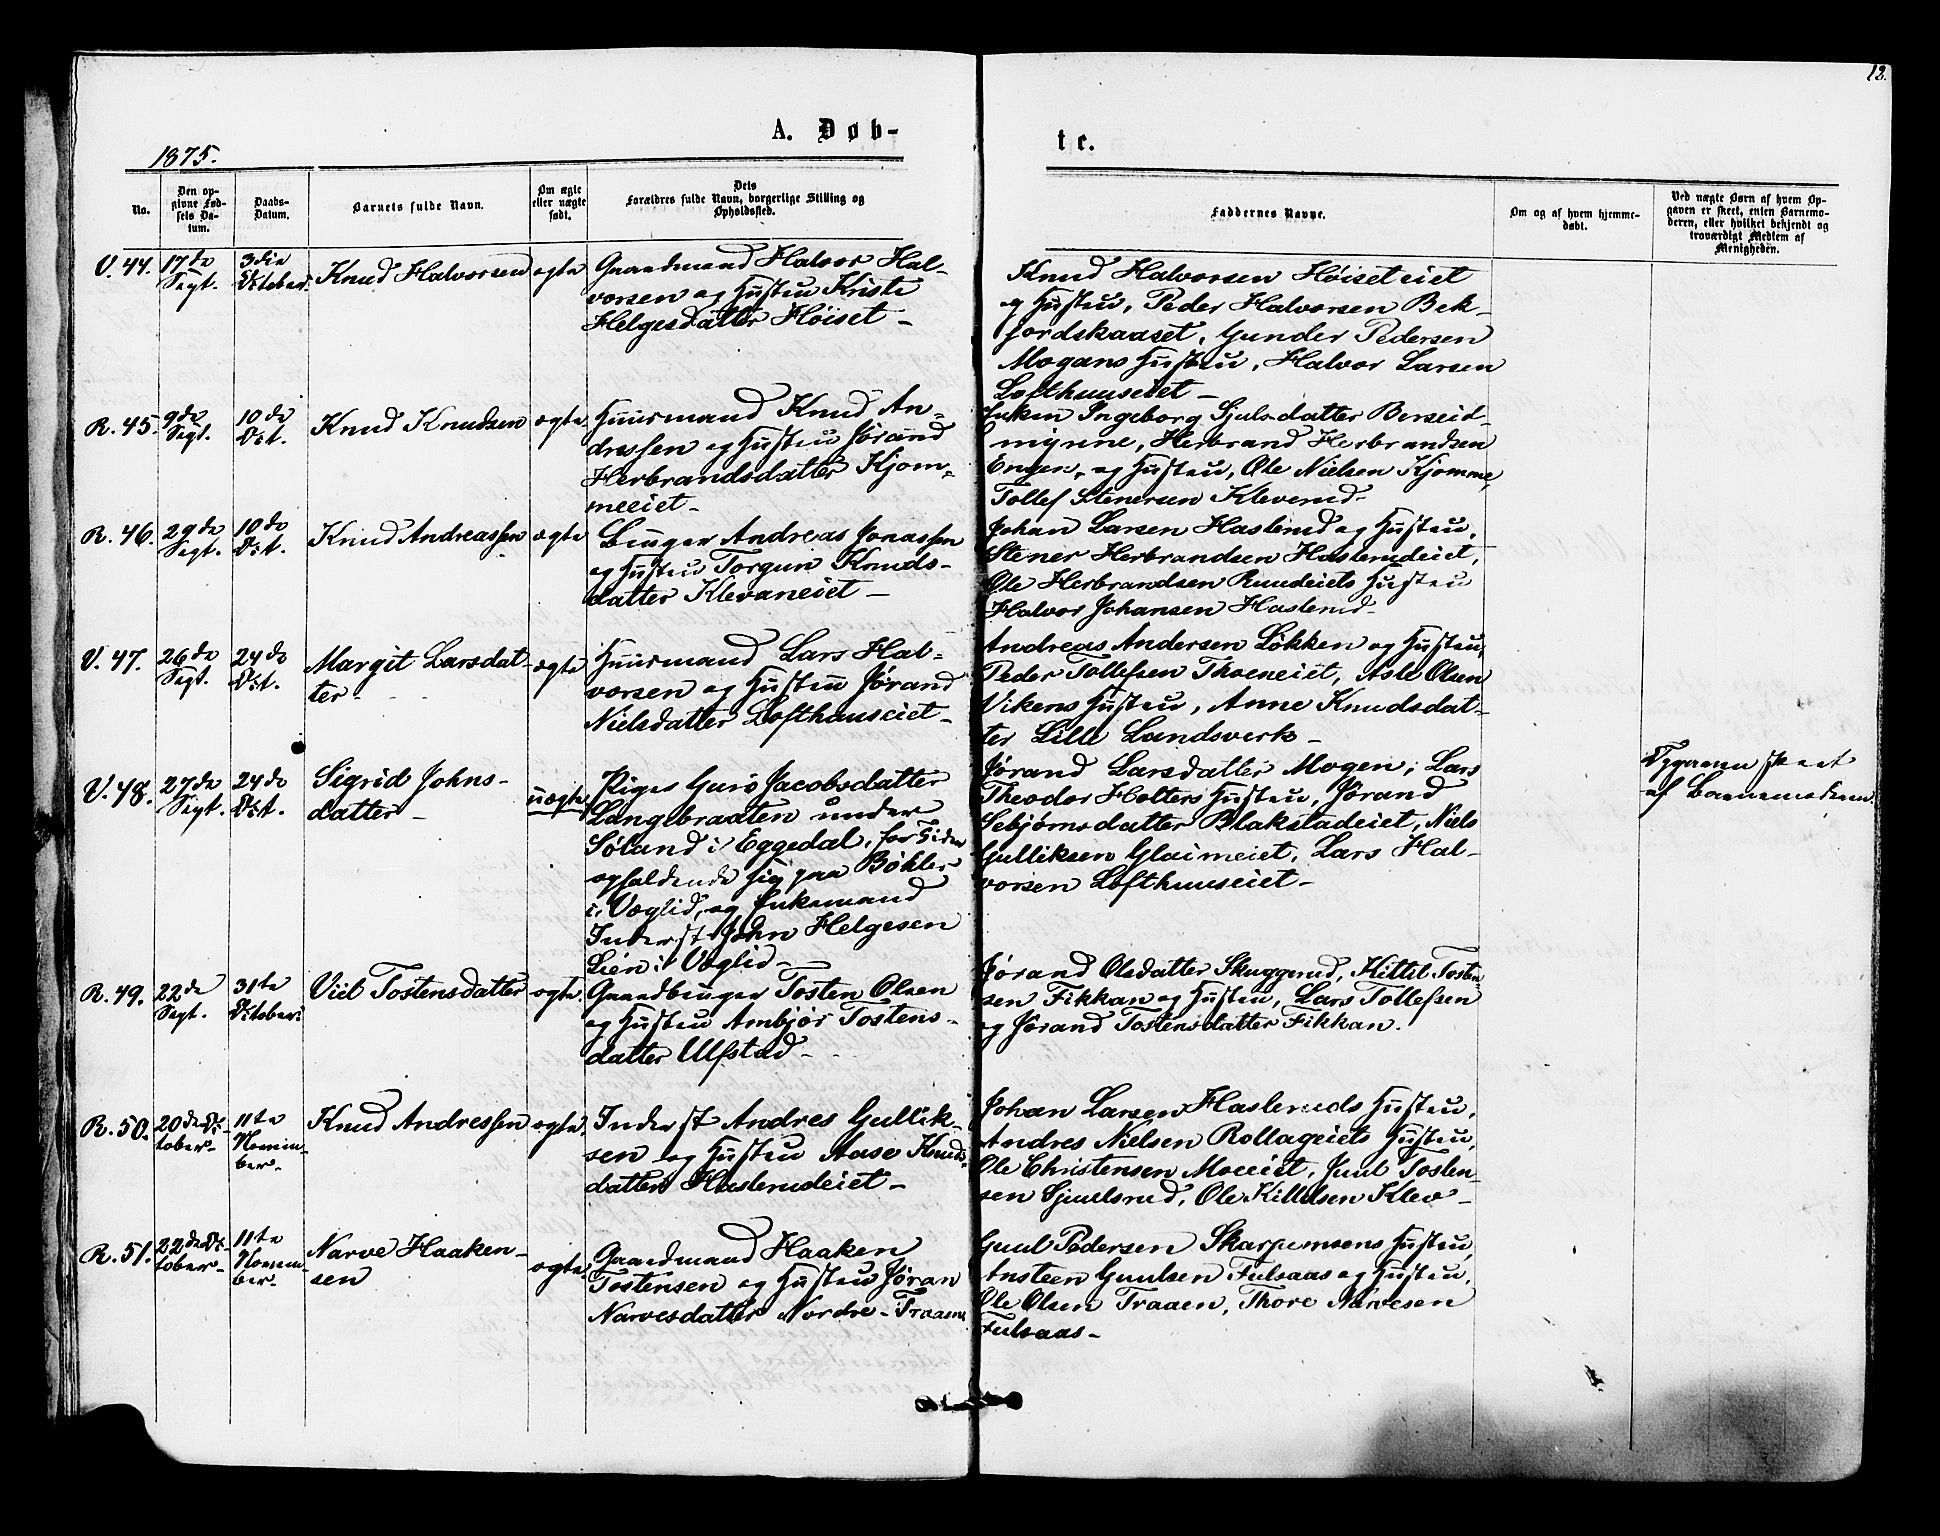 12.
A. Døb-
te.
1875.
No.
Den op-
givne Fød-
sels Da-
tum.
Daabs-
Datum.
Barnets fulde Navn.
Om ægte
eller uægte
født.
Dets
Forældres fulde Navn, borgerlige Stilling og
Opholdssted.
Faddernes Navne.
Om og af hvem hjemme-
døbt.
Ved uægte Børn af hvem Op-
gaven er skeet, enten Barnemo-
deren, eller hvilket bekjendt og
troværdigt Medlem af
Menigheden.
V. 44.
17de
Sept.
3die
October.
Knud Halvorsen
ægte
Gaardmand Halvor Hal-
vorsen og Hustru Kristi
Helgesdatter Høiset -
Knud Halvorsen Høiseteiet
og Hustru, Peder Halvorsen Bek-
jordskaaset, Gunder Pedersen
Mogans Hustru, Halvor Larsen
Lofthuuseiet -
R. 45.
9de
Sept.
10de
Oct.
Knud Knudsen
ægte
Huusmand Knud An-
dressen og Hustru Jørand
Herbrandsdatter Kjom-
meeiet -
Enken Ingeborg Gjulsdatter Berseid-
mynne, Herbrand Herbrandsen
Engen, og Hustru, Ole Nielsen Kjomme,
Tollef Stenersen Kleverud -
R. 46.
29de
Sept.
10de
Oct.
Knud Andreassen
ægte
Bruger Andreas Jonassen
og Hustru Torgun Knuds-
datter Klevaneiet -
Johan Larsen Haslerud og Hustru,
Stener Herbrandsen Haslerudeiet,
Ole Herbrandsen Ruudeiets Hustru
Halvor Johansen Haslerud -
V. 47.
26de
Sept.
24de
Oct.
Margit Larsdat-
ter -
ægte
Huusmand Lars Hal-
vorsen og Hustru Jørand
Nielsdatter Lofthuuseiet -
Andreas Andersen Løkken og Hustru,
Peder Tollefsen Thoeneiet, Asle Olsen
Vikens Hustru, Anne Knudsdat-
ter Lille Landsverk -
V. 48.
27de
Sept.
24de
Oct.
Sigrid Johns-
datter -
uægte
Piges Guro Jacobsdatter
Langbraaten under
Søland i Eggedal, for Tiden
opholdende sig paa Bøhler
i Væglid, og Enkemand
Inderst John Helgesen
Lien i Væglid -
Jørand Larsdatter Mogen, Lars
Theodor Holters Hustru, Jørand
Sebjørnsdatter Blakstadeiet, Niels
Gulliksen Glaimeiet, Lars Hal-
vorsen Lofthuuseiet -
Opgaven skeet
af Barnemoderen.
R. 49.
22de
Sept.
31te
October
Viel Tostensdatter
ægte
Gaardbruger Tosten Olsen
og Hustru Ambjør Tostens-
datter Ulfstad -
Jørand Olsdatter Skuggerud, Kittil Tosten-
sen Fikkan og Hustru, Lars Tollefsen
og Jørand Tostensdatter Fikkan.
R. 50.
20de Oc-
tober -
11te
Novem-
ber -
Knud Andressen
ægte
Inderst Andres Gullik-
sen og Hustru Aase Knuds-
datter Haslerudeiet -
Johan Larsen Hasleruds Hustru,
Andres Nielsen Rollageiets Hustru,
Ole Christensen Moeeiet, Juul Tosten-
sen Gjuulsrud, Ole Kittilsen Klev -
R. 51.
22de Oc-
tober -
11te
Novem-
ber -
Narve Haaken-
sen
ægte
Gaardmand Haaken
Tostensen og Hustru Jøran
Narvesdatter Nordre-Traaen
Guul Pedersen Skarpmoens Hustru,
Ansteen Guulsen Fulsaas og Hustru,
Ole Olsen Traaen, Thore Narvesen
Fulsaas -